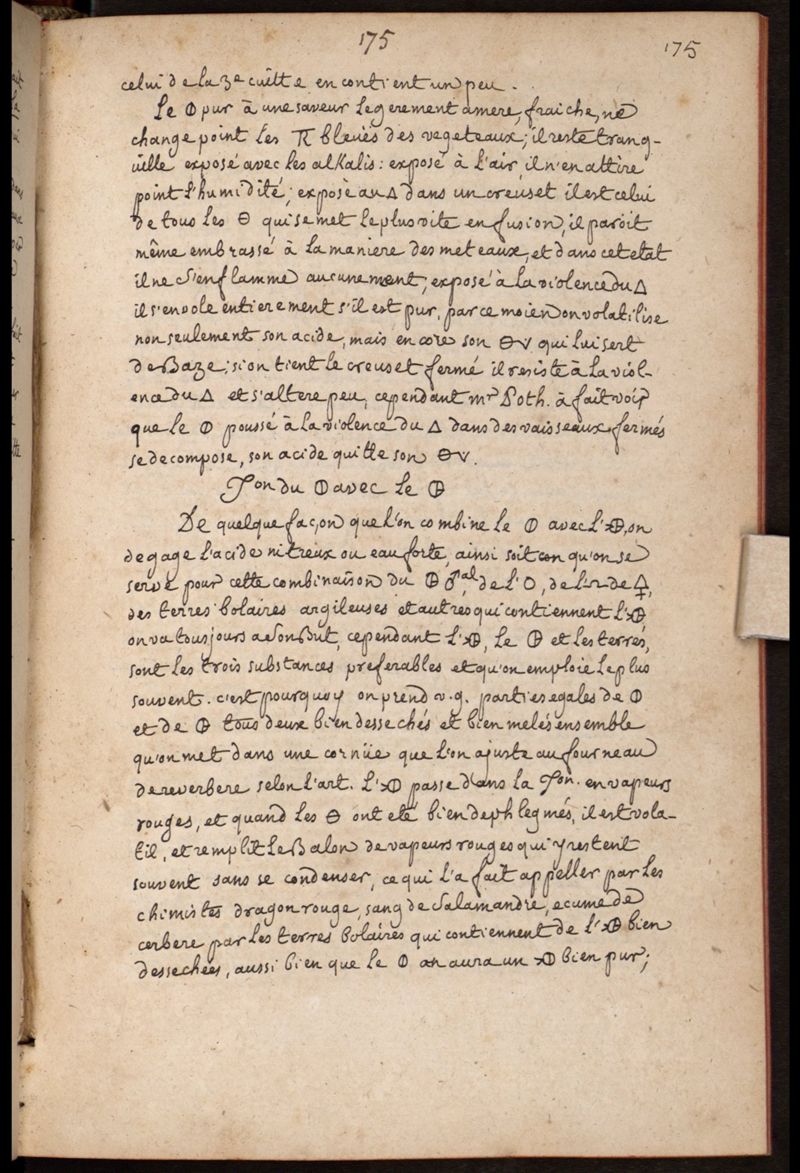 175
175
celui de la 3e cuitte en contient un peu.
Le 🜕 pur à une saveur legerement amere, fraiche, ne
change point les bleuës des vegeteaux; il reste tranq-
uille exposé avec les alKalis: exposé à l'air il n'en attire
point l'humidité; exposé au 🜂 dans un creuset il est celui
de tous les 🜔 qui se met le plus vite en fusion, il paroit
même embrassé à la maniere des meteaux, et dans cet etat
il ne s'enflamme aucunement; exposé à la violence du 🜂
il s'envole entierement s'il est pur, par ce moien on volatilise
non seulement son acide, mais encore son 🜔v qui lui sert
de Baze; si on tient le creuset fermé il resiste à la viol-
ence du 🜂 et s'altere peu, cependant mr Poth. à fait voir
que le 🜕 poussé à la violence du 🜂 dans des vaisseaux fermés
se decompose, son acide quitte son 🜔v.
on du 🜕 avec le 🜖
De quelque façon que l'on combine le 🜕 avec l' on
degage l'acide nitreux ou eau forte, ainsi soit con qu'on se
serve pour cette combinaison du 🜖 ♂al, de l' de l' de 🜍,
des terres bolaires argileuses et autres qui contiennent l'
on va tousjours a son But, cependant l' le 🜖 et les terres,
sont les trois substances preferables et qu'on emploie le plus
souvent. c'est pourquoy on prend v.g. parties egales de 🜕
et de 🜖 tous deux bien dessechés et bien melés ensemble
qu'on met dans une cornüe que l'on ajuste au fourneau
de reverbere selon l'art. L' passe dans la on. en vapeurs
rouges, et quand les 🜔 ont eté bien dephlegmés, il est vola-
til, et remplit le Balon de vapeurs rouges qui y restent
souvent sans se condenser, ce qui l'a fait appeller par les
chimistes dragon rouge, sang de Salamandre, ecume de
cerbere par les terres bolaires qui contiennent de l' bien
dessechées, aussi bien que le 🜕 on aura un bien pur;